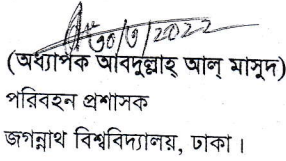 ৩০/৩/2022
(অধ্যাপক আবদুল্লাহ্ আল্ মাসুদ)
পরিবহন প্রশাসক
জগন্নাথ বিশ্ববিদ্যালয়, ঢাকা।